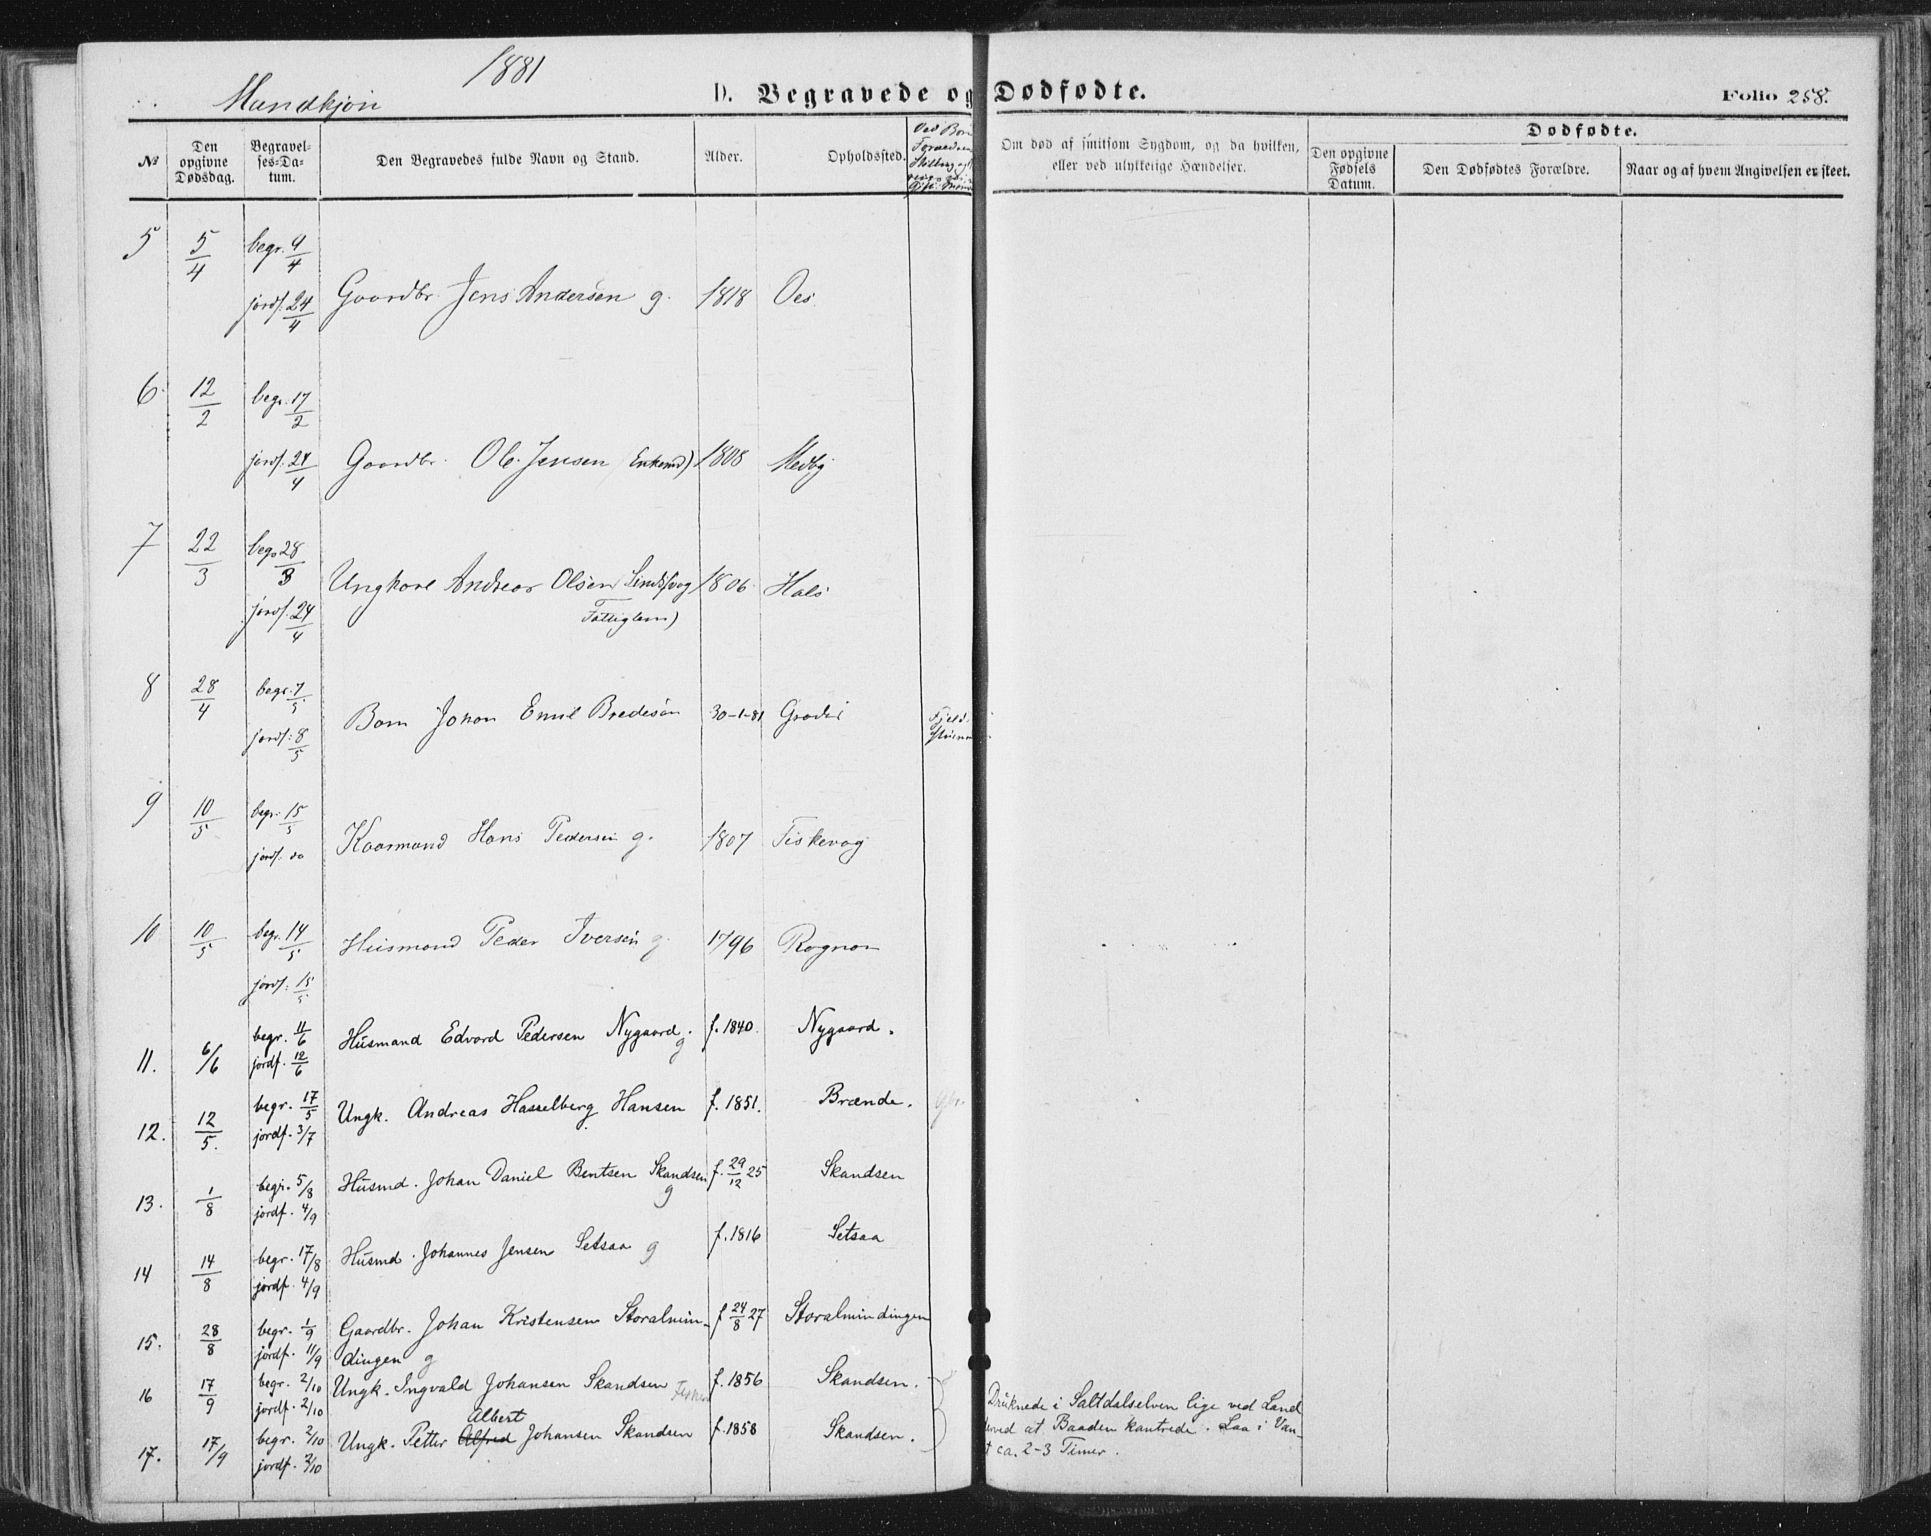 1881
Mandkjön
D. Begravede og Dødfødte.
Folio 258.
№ Den opgivne Dødsdag. Begravelses-Datum. Den Begravedes fulde Navn og Stand. Alder. Opholdssted. Om død af smitsom Sygdom, og da hvilken, eller ved ulykkelige Hændelser. Dødfødte. Den opgivne Fødsels Datum. Den Dødfødtes Forældre. Naar og af hvem Angivelsen er skeet.
5 5/4 begr. 9/4
jordf. 24/4 Gaardbr. Jens Andersen g. 1818 Oes
6 12/2 begr. 17/2
jordf. 24/4 Gaardbr. Ole Jensen (Enkemd) 1808 Medby
7 22/3 begr. 28/3
Ungkarl Andreas Olsen 1806 Hals
jordf. 24/4 Fattiglem)
8 28/4 begr. 7/5
Barn Johan Emil Bredesen 30-1-81
jordf. 8/5
9 10/5 begr. 15/5
jordf. do Kaarmand Hans Pedersen g. 1807 Fiskevag
10 10/5 begr. 14/5 Huusmand Peder Iversen g. 1796 Rognan
jordf. 15/5
11. 6/6 begr. 11/6 Husmand Edvard Pedersen Nygaard. g f. 1840. Nygaard.
jordf. 12/6
12. 12/5. begr. 17/5 Ungk. Andreas Hasselberg Hansen f. 1851. Brænde.
jordf. 3/7
13. 1/8 begr. 5/8 Husmd. Johan Daniel Bentsen Skandsen g f. 29/12 25 Skandsen
jordf. 4/9
14 14/8 begr. 17/8 Husmd. Johannes Jensen Setsaa g f. 1816 Setsaa
jordf. 4/9
15. 28/8 begr. 1/9 Gaardbr. Johan Kristensen Storalmin- f 24/8 27 Storalmindingen
jordf. 11/9 dingen g
16 17/9 begr. 2/10 Ungk. Ingvald Johansen Skandsen f. 1856 Skandsen.
jordf. 2/10
Druknede i Saltdalselven lige ved Land
Albert
17. 17/9 begr. 2/10 Ungk. Petter Alfred Johansen Skandsen f. 1858 Skandsen.
jordf. 2/10
ved at Baaden kantrede. Laa i Van-
ca. 2-3 Timer.